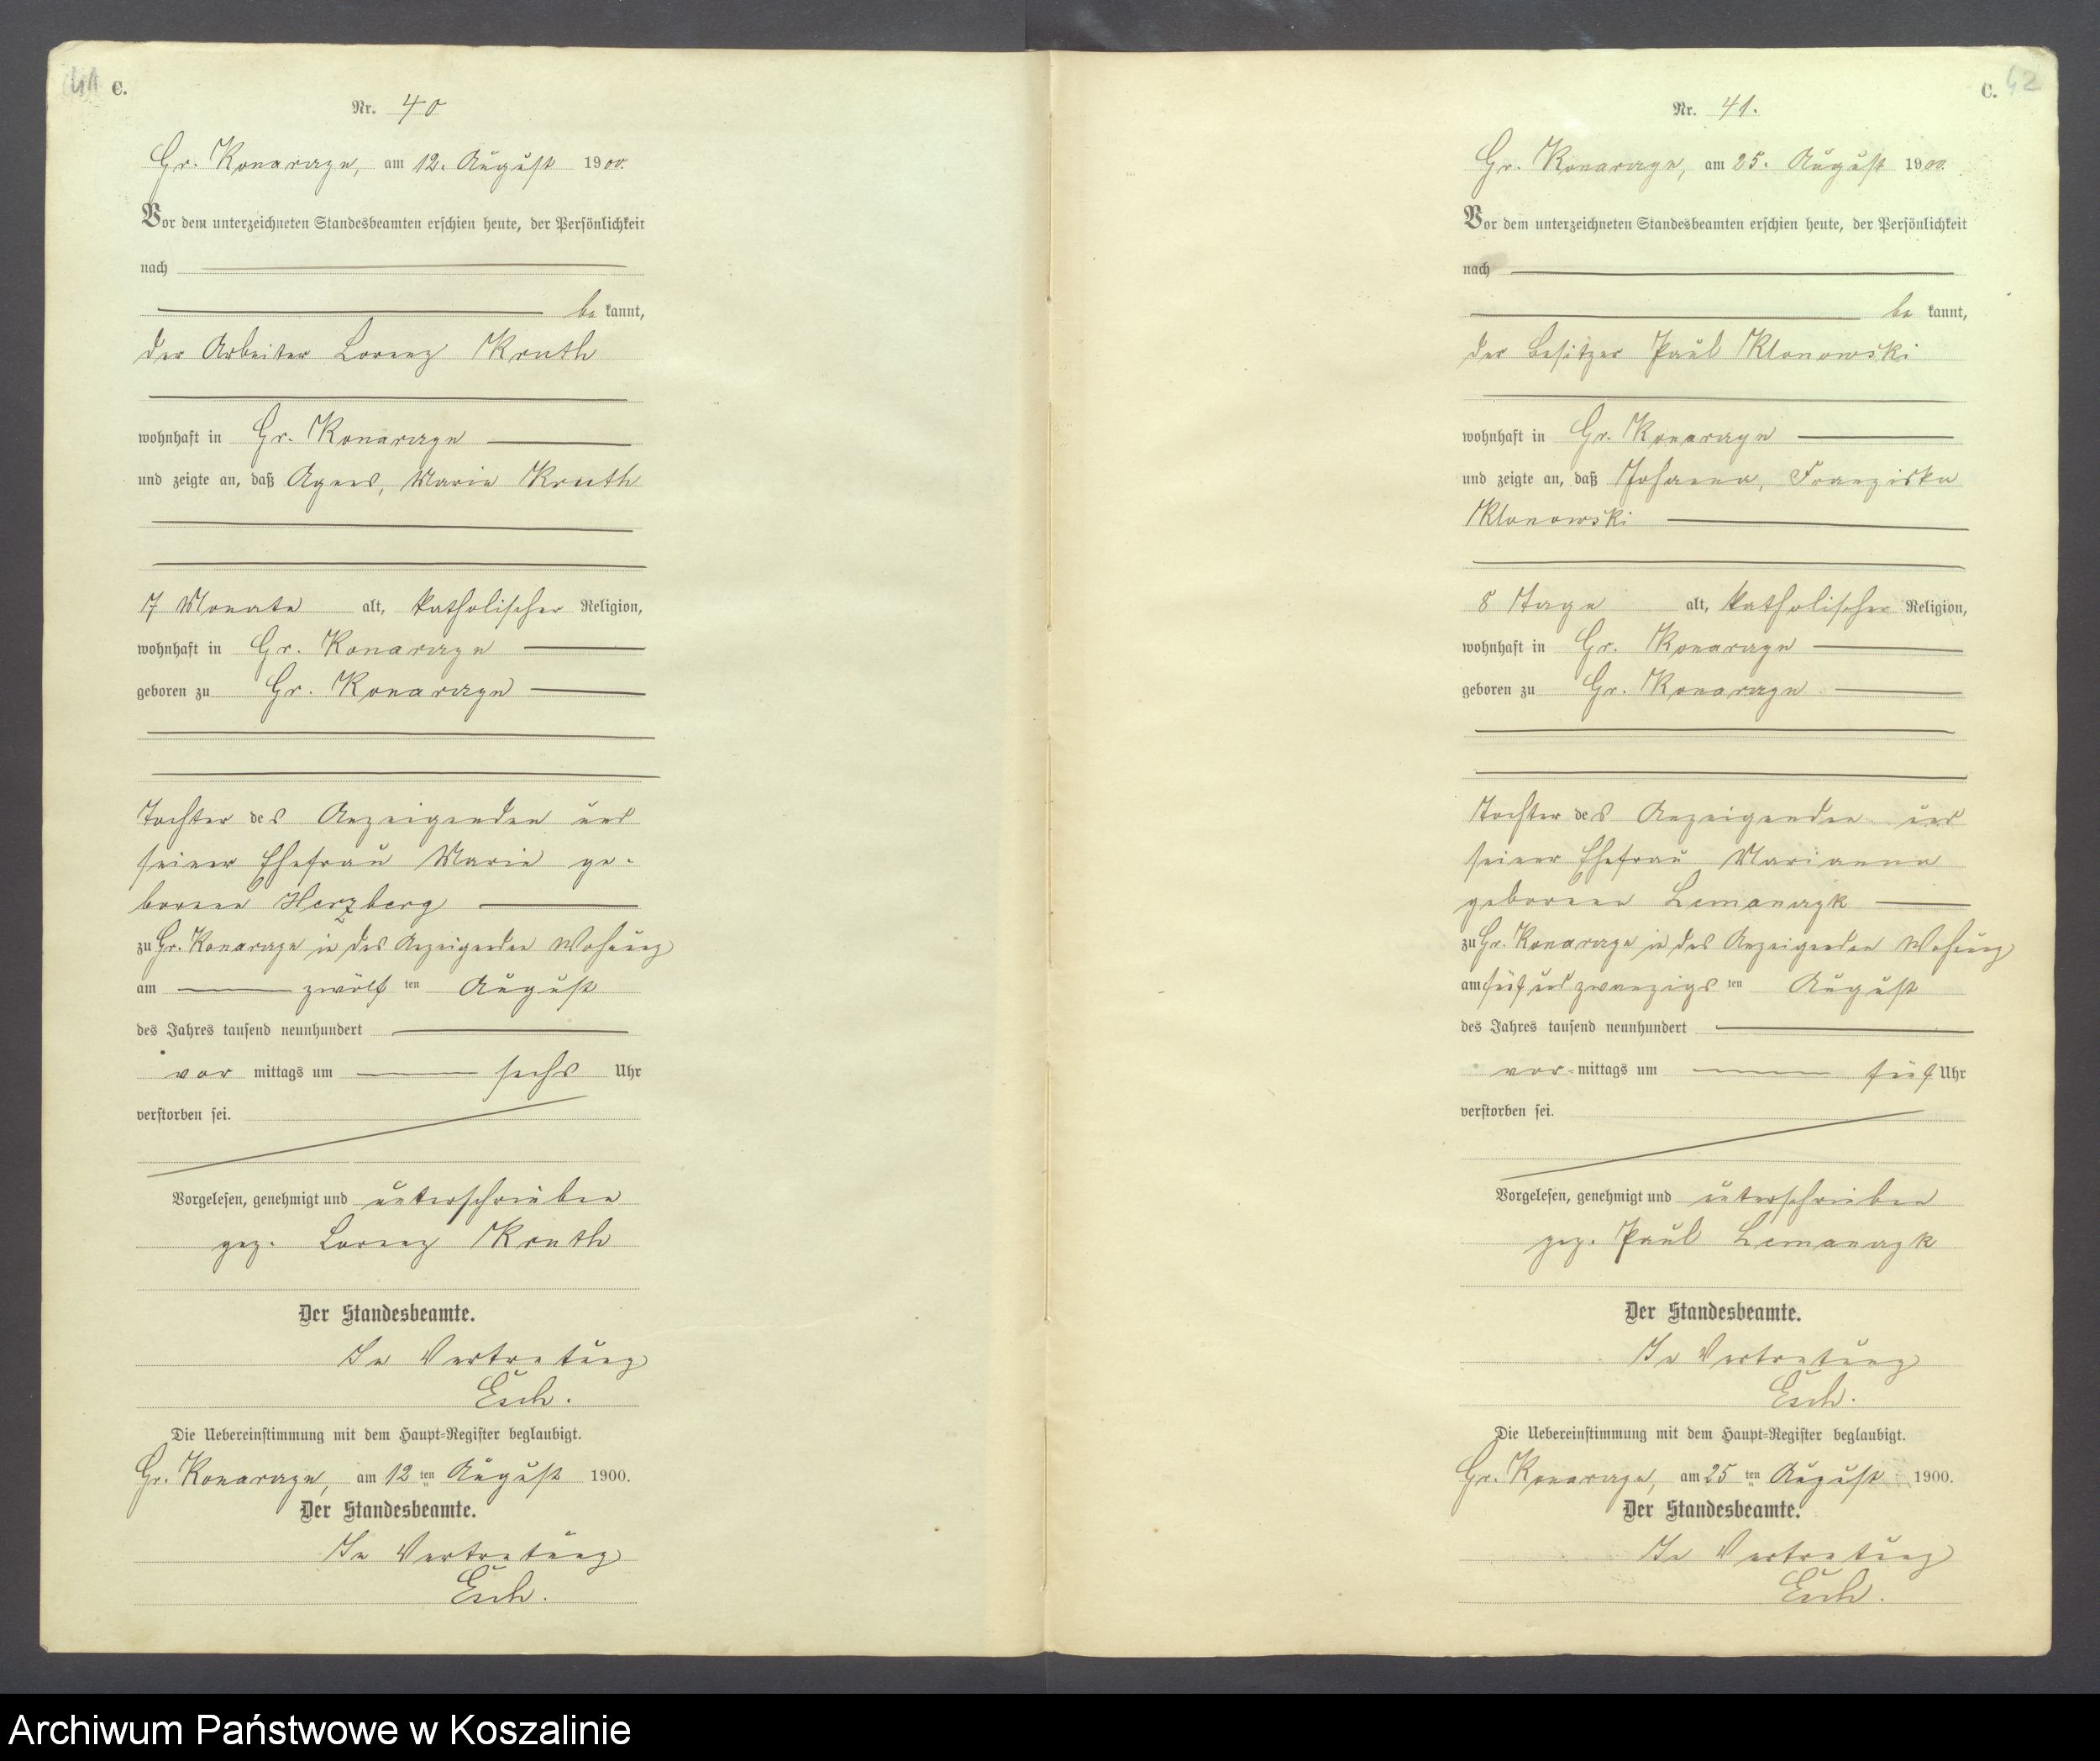 41 C.
Nr. 40
Gr. Konarczyn, am 12. August 1900.
Vor dem unterzeichneten Standesbeamten erschien heute, der Persönlichkeit
nach
be kannt,
der Arbeiter Lorenz Kruth
wohnhaft in Gr. Konarczyn
und zeigte an, daß Agnes, Marie Kruth
7 Monate alt, katholischer Religion,
wohnhaft in Gr. Konarczyn
geboren zu Gr. Konarczyn
Tochter des Anzeigenden und
seiner Ehefrau Marie ge-
borene Herzberg
zu Gr. Konarczyn in des Anzeigenden Wohnung
am zwölf ten August
des Jahres tausend neunhundert
vor mittags um sechs Uhr
verstorben sei.
Vorgelesen, genehmigt und unterschrieben
gez. Lorenz Kruth
Der Standesbeamte.
In Vertretung
Esch.
Die Uebereinstimmung mit dem Haupt-Register beglaubigt.
Gr. Konarczyn, am 12 ten August 1900.
Der Standesbeamte.
In Vertretung
Esch.
C. 42
Nr. 41.
Gr. Konarczyn, am 25. August 1900.
Vor dem unterzeichneten Standesbeamten erschien heute, der Persönlichkeit
nach
be kannt,
der Besitzer Paul Klonowski
wohnhaft in Gr. Konarczyn
und zeigte an, daß Johanna, Franziska
Klonowski
8 Tage alt, katholischer Religion,
wohnhaft in Gr. Konarczyn
geboren zu Gr. Konarczyn
Tochter des Anzeigenden und
seiner Ehefrau Marianna
geborene Lemanczk
zu Gr. Konarczyn in des Anzeigenden Wohnung
am fünf und zwanzigs ten August
des Jahres tausend neunhundert
vor-mittags um fünf Uhr
verstorben sei.
Vorgelesen, genehmigt und unterschrieben
gez. Paul Lemanczk
Der Standesbeamte.
In Vertretung
Esch.
Die Uebereinstimmung mit dem Haupt-Register beglaubigt.
Gr. Konarczyn, am 25 ten August 1900.
Der Standesbeamte.
In Vertretung
Esch.
Archiwum Państwowe w Koszalinie